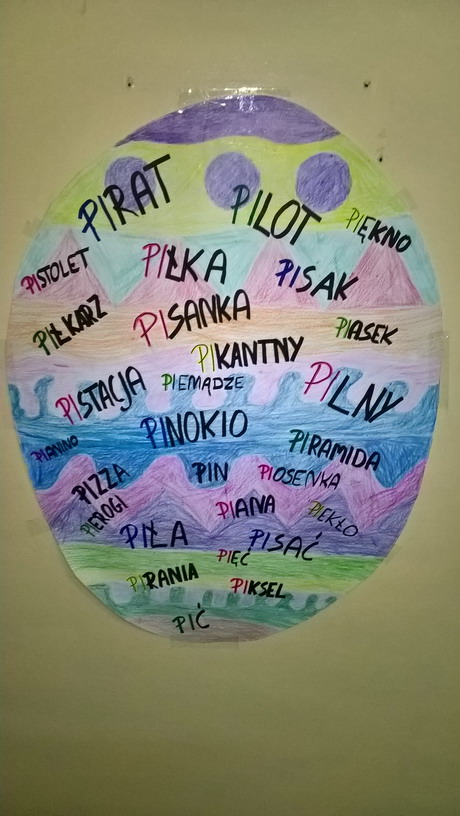 PIRAT
PILOT
PIĘKNO
PISTOLET
PIŁKA
PISAK
PIŁKARZ
PISANKA
PIASEK
PIKANTNY
PISTACJA
PIEMĄDZE
PILNY
PINOKIO
PIANINO
PIRAMIDA
PIZZA
PIN
PIOSENKA
PIEROGI
PIANA
PIEKŁO
PIŁA
PISAĆ
PIĘĆ
PIRANIA
PIKSEL
PIĆ